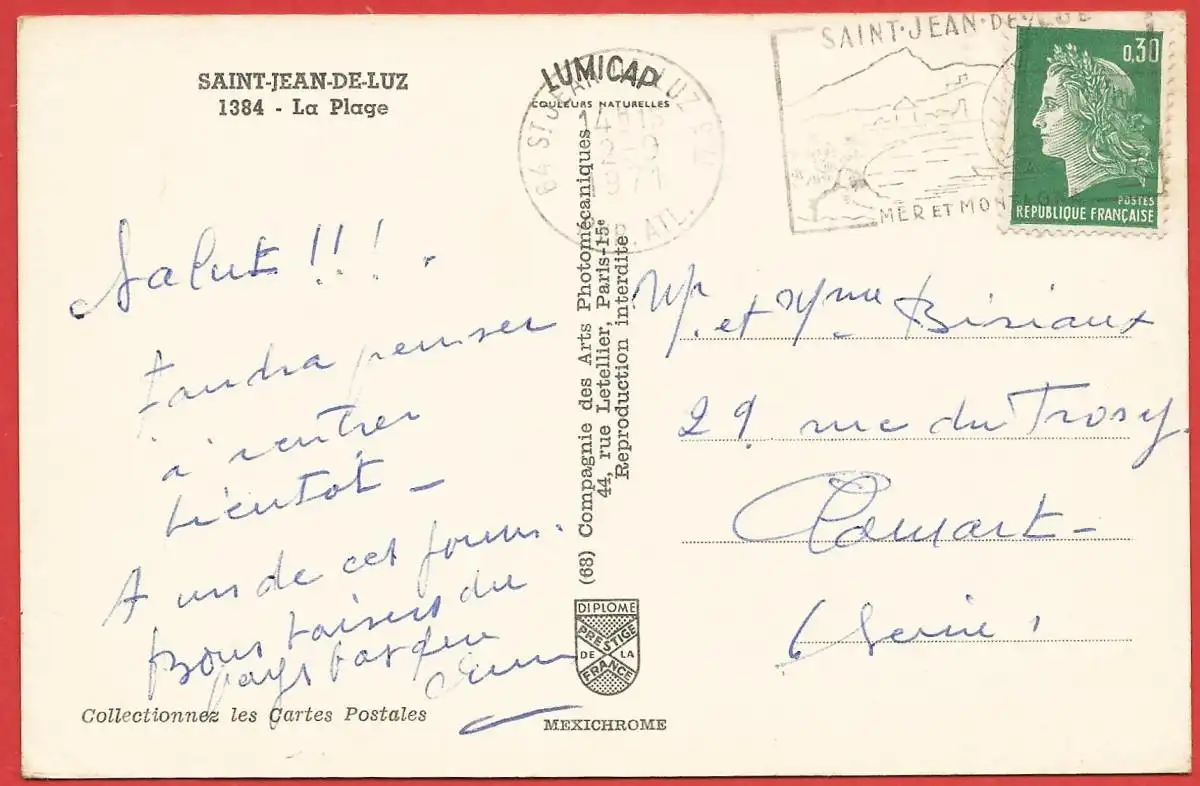 SAINT-JEAN-DE-LUZ
1384 - La Plage
LUMICAP
COULEURS NATURELLES
64 ST JEAN DE LUZ
14H15
1971
ATL.
SAINT·JEAN·DE·LUZ
MER ET MONTAGNE
0,30
POSTES
REPUBLIQUE FRANÇAISE
Salut !!!.
faudra penser
à rentrer
bientôt -
A un de ces jours.
Bons baisers du
pays basque
(68) Compagnie des Arts Photomécaniques
44, rue Letellier, Paris-15e
Reproduction interdite
Mr et Mme Bisiaux
29 rue du Trosy.
Clamart -
(Seine)
DIPLOME
PRESTIGE
DE LA
FRANCE
Collectionnez les Cartes Postales
MEXICHROME